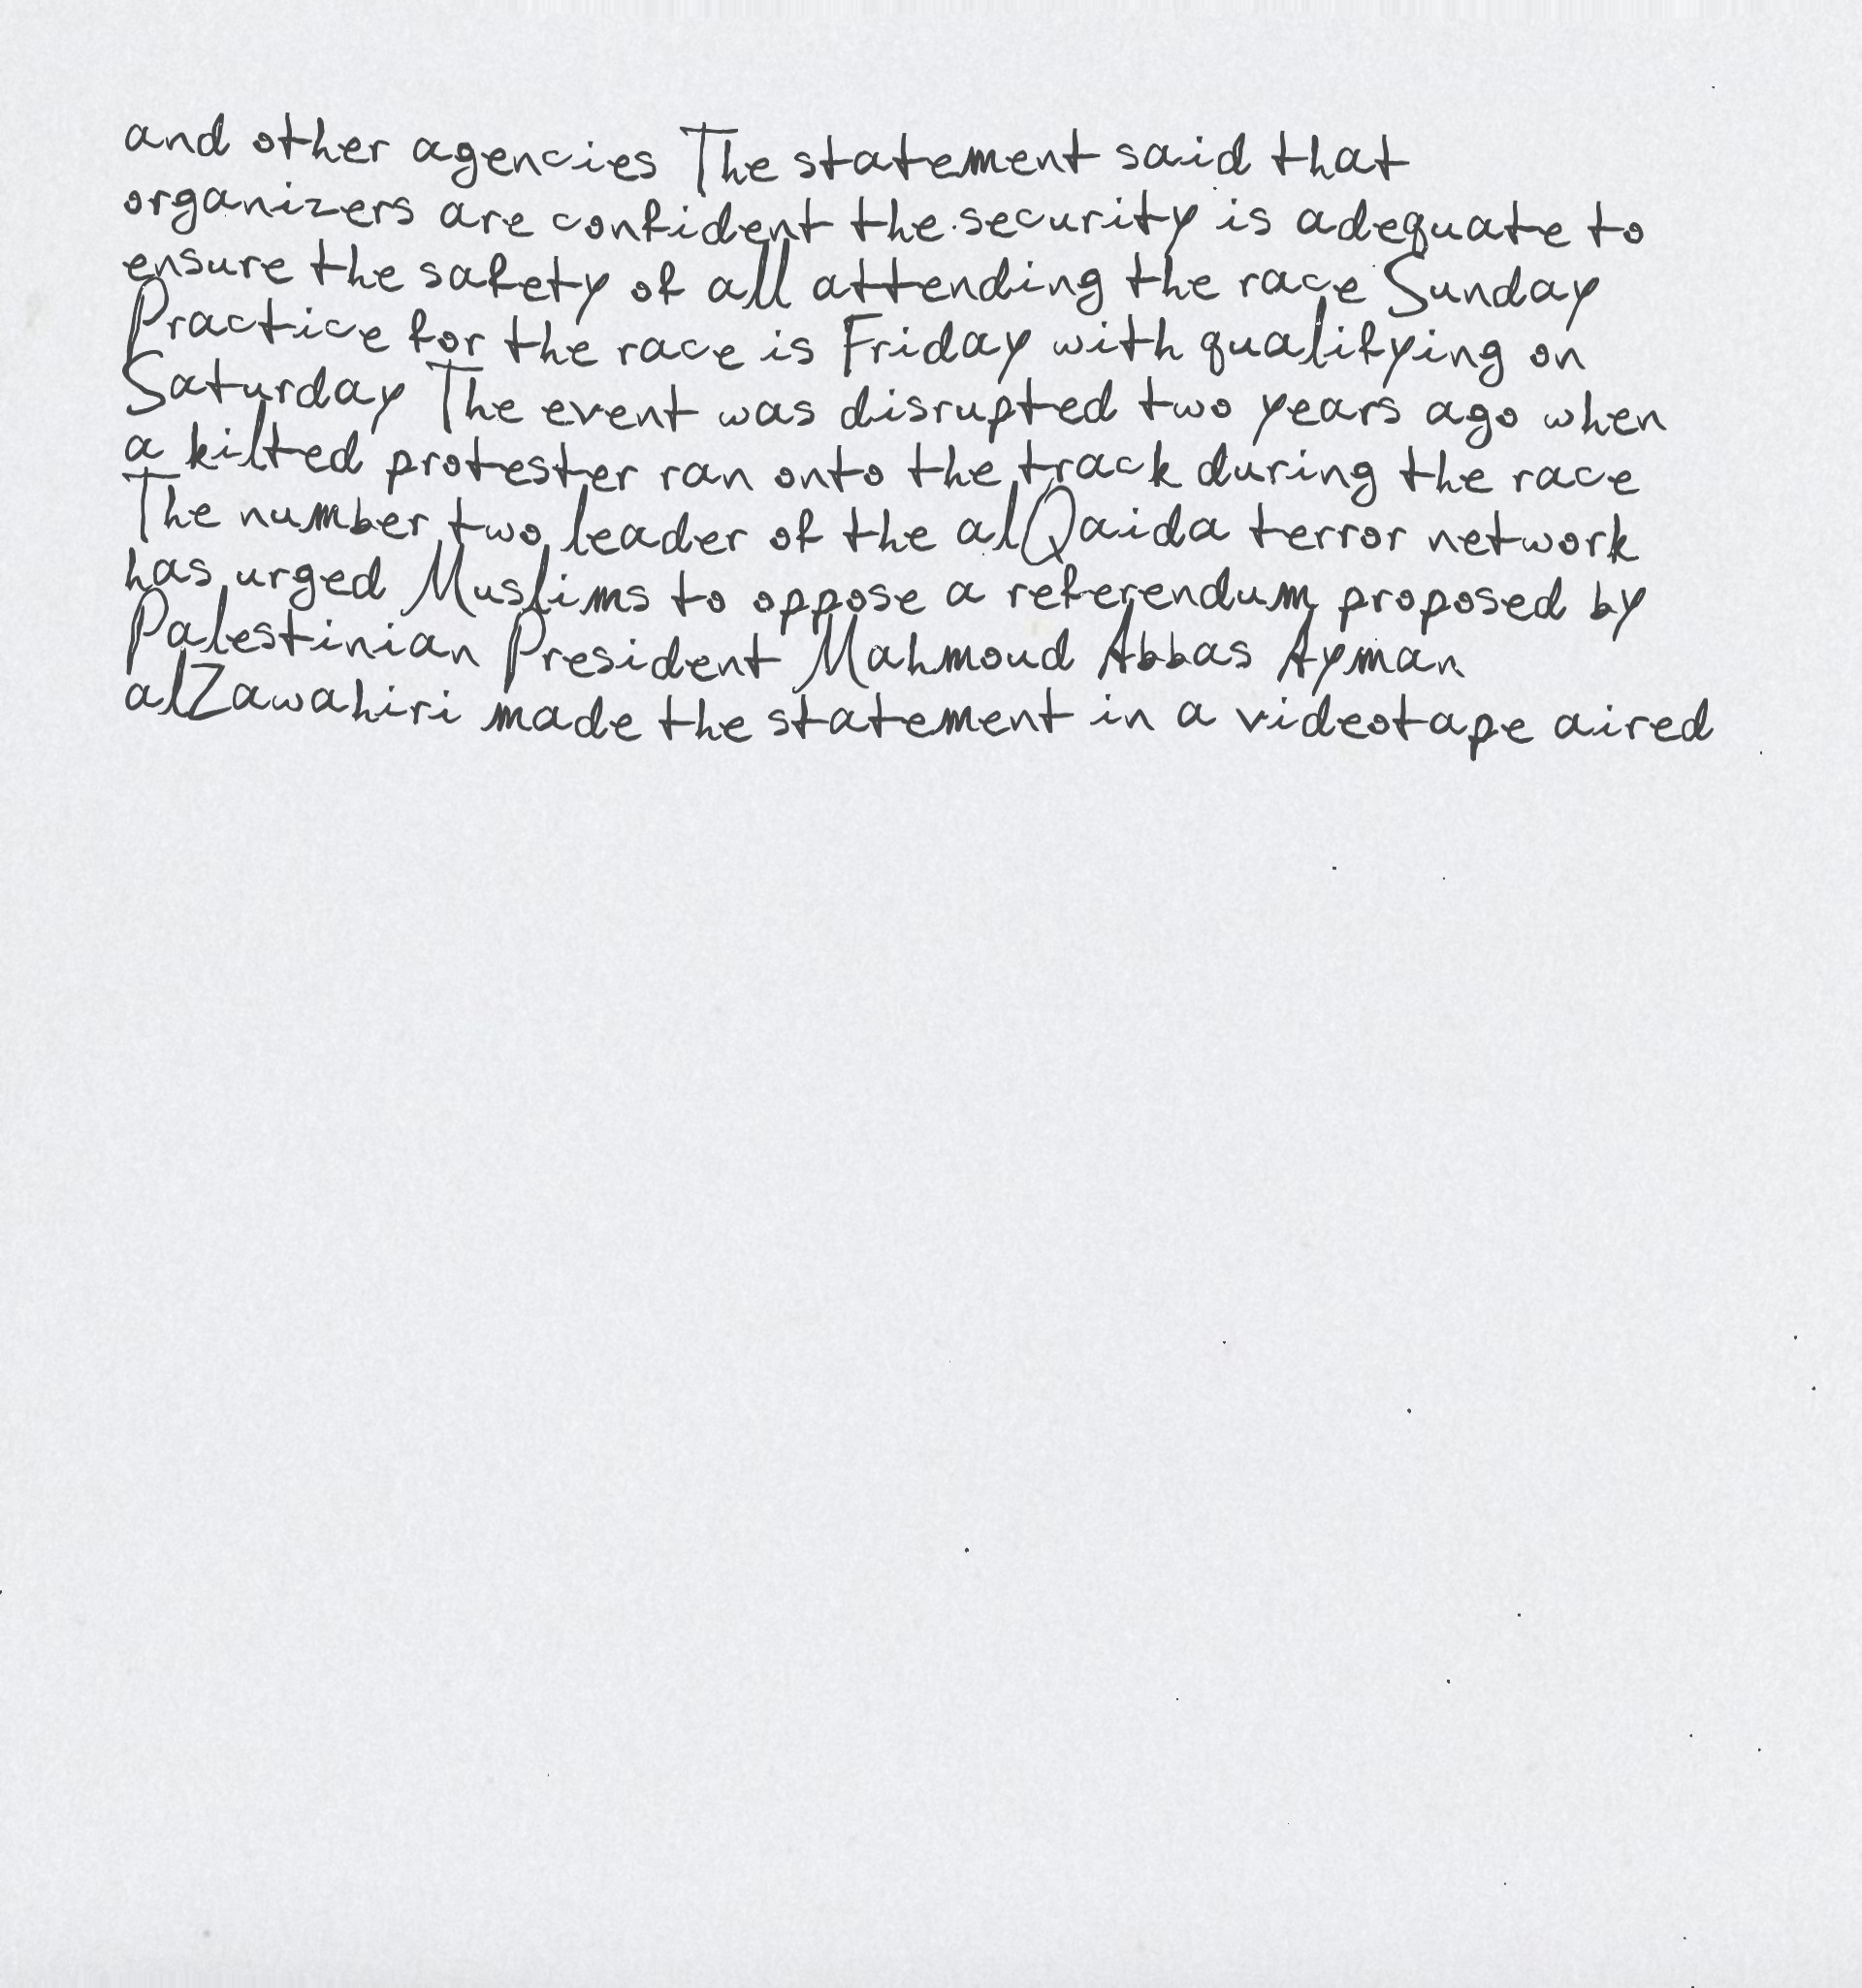 and other agencies The statement said that
organizers are confident the security is adequate to
ensure the safety of all attending the race Sunday
Practice for the race is Friday with qualifying on
Saturday The event was disrupted two years ago when
a kilted protester ran onto the track during the race
The number two leader of the alQaida terror network
has urged Muslims to oppose a referendum proposed by
Palestinian President Mahmoud Abbas Ayman
alZawahiri made the statement in a videotape aired